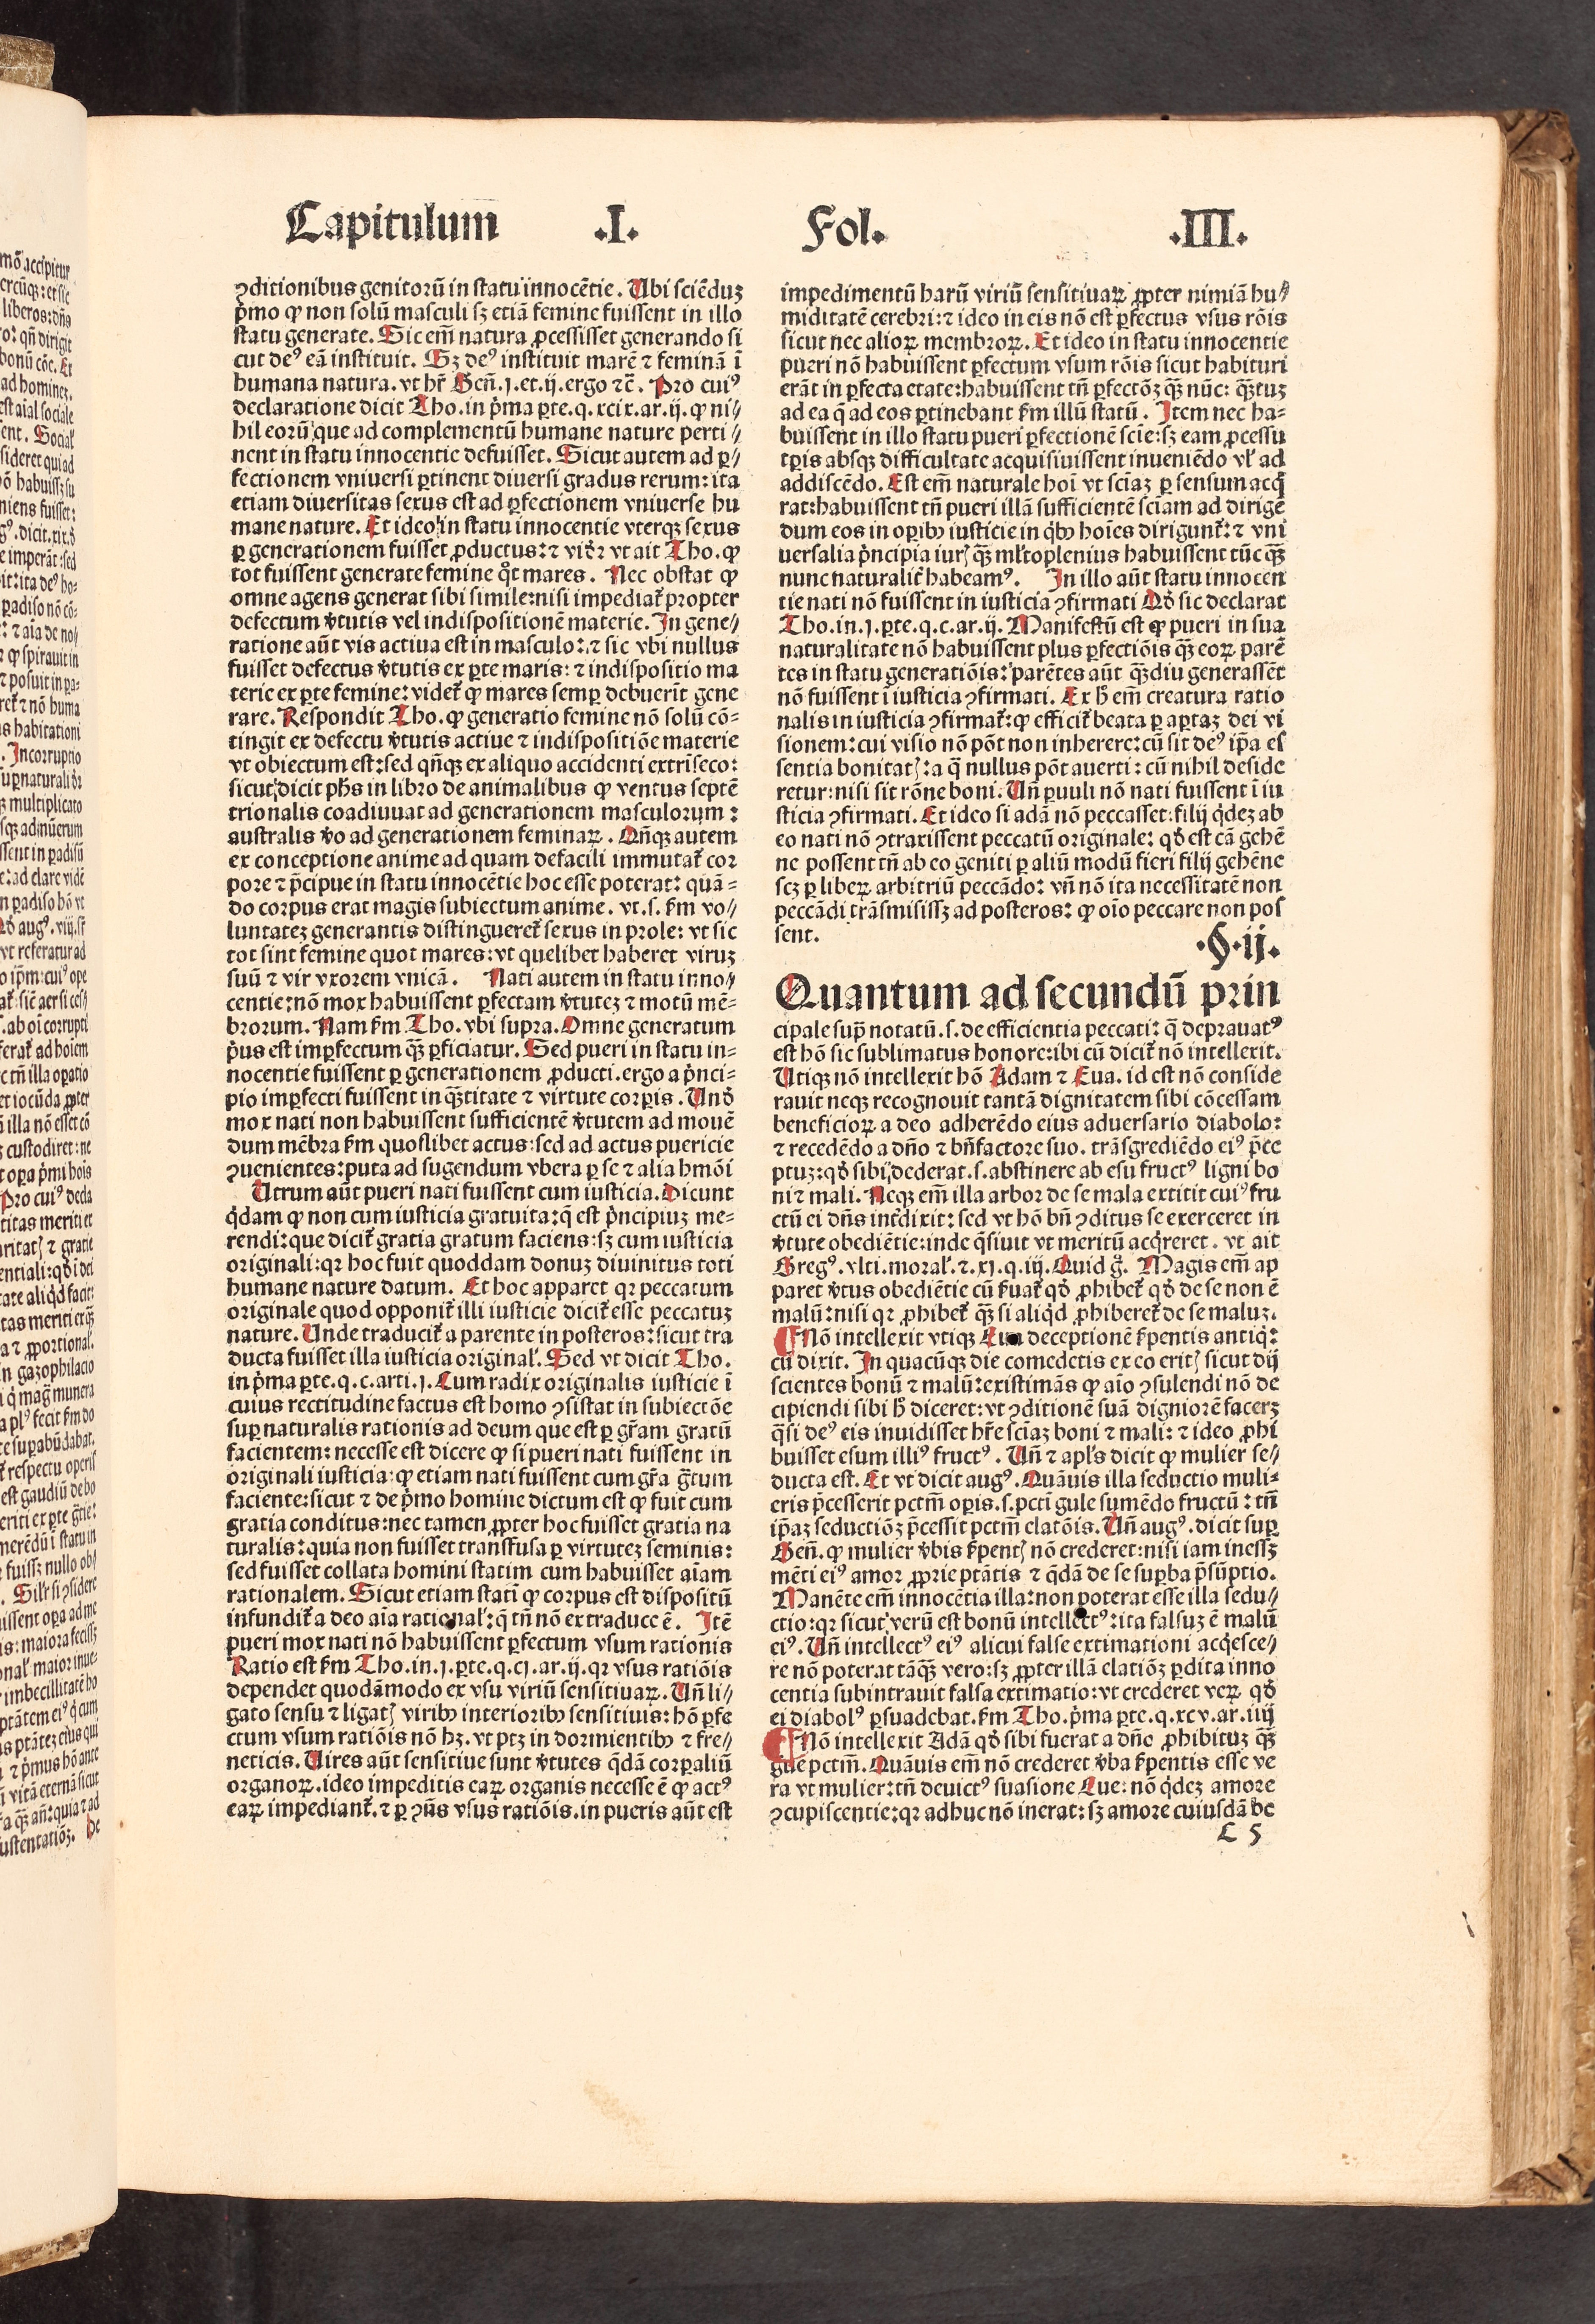 Capitulum .I. Fol. .III.
ꝯditionibus genitorū in statu innocētie. Ubi sciēduꝫ
p̄mo ꝙ non solū masculi sꝫ etiā femine fuissent in illo
statu generate. Sic em̄ natura ꝓcessisset generando si
cut deꝰ eā instituit. Sꝫ deꝰ instituit marē ⁊ feminā ī
humana natura. vt hr̄ Gen̄.j.et.ij.ergo ⁊c̄. Pro cuiꝰ
declaratione dicit Tho.in p̄ma ꝑte.q.xcix.ar.ij. ꝙ ni⸗
hil eorū que ad complementū humane nature perti⸗
nent in statu innocentie defuisset. Sicut autem ad ꝑ⸗
fectionem vniuersi ꝑtinent diuersi gradus rerum: ita
etiam diuersitas sexus est ad ꝑfectionem vniuerse hu
mane nature. Et ideo in statu innocentie vterqꝫ sexus
ꝑ generationem fuisset ꝓductus: ⁊ vid̄r vt ait Tho. ꝙ
tot fuissent generate femine qͦt mares. Nec obstat ꝙ
omne agens generat sibi simile:nisi impediat᷑ propter
defectum v̄tutis vel indispositionē materie. In gene⸗
ratione aūt vis actiua est in masculo:⁊ sic vbi nullus
fuisset defectus v̄tutis ex ꝑte maris: ⁊ indispositio ma
terie ex ꝑte femine: videt᷑ ꝙ mares semꝑ debuerīt gene
rare. Respondit Tho. ꝙ generatio femine nō solū cō⸗
tingit ex defectu v̄tutis actiue ⁊ indispositiōe materie
vt obiectum est:sed qn̄qꝫ ex aliquo accidenti extrīseco:
sicut dicit ph̄s in libro de animalibus ꝙ ventus septē
trionalis coadiuuat ad generationem masculorum:
australis v̄o ad generationem feminaꝝ. Qn̄qꝫ autem
ex conceptione anime ad quam defacili immutat᷑ cor
pore ⁊ p̄cipue in statu innocētie hoc esse poterat: quā⸗
do corpus erat magis subiectum anime. vt.s. ẜm vo⸗
luntateꝫ generantis distingueret᷑ sexus in prole: vt sic
tot sint femine quot mares: vt quelibet haberet viruꝫ
suū ⁊ vir vxorem vnicā. Nati autem in statu inno⸗
centie:nō mox habuissent ꝑfectam v̄tuteꝫ ⁊ motū mē⸗
brorum. Nam ẜm Tho. vbi supra. Omne generatum
p̄us est imꝑfectum qꝫ̄ ꝑficiatur. Sed pueri in statu in⸗
nocentie fuissent ꝑ generationem ꝓducti.ergo a p̄nci⸗
pio imꝑfecti fuissent in qꝫ̄titate ⁊ virtute corꝑis. Und̄
mox nati non habuissent sufficientē v̄tutem ad mouē
dum mēbra ẜm quoslibet actus: sed ad actus puericie
ꝯuenientes: puta ad sugendum vbera ꝑ se ⁊ alia hmōi
Utrum aūt pueri nati fuissent cum iusticia. Dicunt
q̇dam ꝙ non cum iusticia gratuita: q̄ est p̄ncipiuꝫ me⸗
rendi:que dicit᷑ gratia gratum faciens: sꝫ cum iusticia
originali: qꝛ hoc fuit quoddam donuꝫ diuinitus toti
humane nature datum. Et hoc apparet qꝛ peccatum
originale quod opponit᷑ illi iusticie dicit᷑ esse peccatuꝫ
nature. Unde traducit᷑ a parente in posteros: sicut tra
ducta fuisset illa iusticia original̓. Sed vt dicit Tho.
in p̄ma ꝑte.q.c.arti.j. Cum radix originalis iusticie ī
cuius rectitudine factus est homo ꝯsistat in subiectōe
suꝑnaturalis rationis ad deum que est ꝑ gr̄am gratū
facientem: necesse est dicere ꝙ si pueri nati fuissent in
originali iusticia: ꝙ etiam nati fuissent cum gr̄a gr̄tum
faciente:sicut ⁊ de p̄mo homine dictum est ꝙ fuit cum
gratia conditus:nec tamen ꝓpter hoc fuisset gratia na
turalis: quia non fuisset transfusa ꝑ virtuteꝫ seminis:
sed fuisset collata homini statim cum habuisset aīam
rationalem. Sicut etiam statī ꝙ corpus est dispositū
infundit᷑ a deo aīa rational̓: q̄ tn̄ nō ex traduce ē. Itē
pueri mox nati nō habuissent ꝑfectum vsum rationis
Ratio est ẜm Tho.in.j.ꝑte.q.cj.ar.ij.qꝛ vsus ratiōis
dependet quodāmodo ex vsu viriū sensitiuaꝝ. Un̄ li⸗
gato sensu ⁊ ligatꝭ viribꝰ interioribꝰ sensitiuis: hō ꝑfe
ctum vsum ratiōis nō hꝫ. vt ptꝫ in dormientibꝰ ⁊ fre⸗
neticis. Uires aūt sensitiue sunt v̄tutes q̄dā corꝑaliū
organoꝝ.ideo impeditis eaꝝ organis necesse ē ꝙ actꝰ
eaꝝ impediant᷑.⁊ ꝑ ꝯn̄s vsus ratiōis.in pueris aūt est
impedimentū harū viriū sensitiuaꝝ ꝓpter nimiā hu⸗
miditatē cerebri:⁊ ideo in eis nō est ꝑfectus vsus rōis
sicut nec alioꝝ membroꝝ. Et ideo in statu innocentie
pueri nō habuissent ꝑfectum vsum rōis sicut habituri
erāt in ꝑfecta etate:habuissent tn̄ ꝑfectōꝫ qꝫ̄ nūc: qꝫ̄tuꝫ
ad ea q̄ ad eos ꝑtinebant ẜm illū statū. Item nec ha⸗
buissent in illo statu pueri ꝑfectionē scīe:sꝫ eam ꝓcessu
tꝑis absqꝫ difficultate acquisiuissent inueniēdo vl̓ ad
addiscēdo. Est em̄ naturale hoī vt sciaꝫ ꝑ sensum acq̄
rat:habuissent tn̄ pueri illā sufficientē sciam ad dirigē
dum eos in oꝑibꝰ iusticie in q̇bꝰ hoīes dirigunt᷑: ⁊ vni
uersalia p̄ncipia iurꝭ qꝫ̄ ml̓to plenius habuissent tūc qꝫ̄
nunc naturalit᷑ habeamꝰ. In illo aūt statu innocen
tie nati nō fuissent in iusticia ꝯfirmati Qd̄ sic declarat
Tho.in.j.ꝑte.q.c.ar.ij. Manifestū est ꝙ pueri in sua
naturalitate nō habuissent plus ꝑfectiōis qꝫ̄ eoꝝ parē
tes in statu generatiōis: parētes aūt qꝫ̄diu generassēt
nō fuissent ī iusticia ꝯfirmati. Ex h̄ em̄ creatura ratio
nalis in iusticia ꝯfirmat᷑:ꝙ efficit᷑ beata ꝑ aꝑtaꝫ dei vi
sionem: cui visio nō pōt non inherere: cū sit deꝰ ip̄a es
sentia bonitatꝭ: a q̄ nullus pōt auerti: cū nihil deside
retur: nisi sit rōne boni. Un̄ ꝑuuli nō nati fuissent ī iu
sticia ꝯfirmati. Et ideo si adā nō peccasset:filij q̇deꝫ ab
eo nati nō ꝯtraxissent peccatū originale: qd̄ est cā gehē
ne possent tn̄ ab eo geniti ꝑ aliū modū fieri filij gehēne
scꝫ ꝑ libeꝝ arbitriū peccādo: vn̄ nō ita necessitatē non
peccādi trāsmisissꝫ ad posteros: ꝙ oīo peccare non pos
sent.
.§.ij.
Quantum ad secundū prin
cipale supͣ notatū.s.de efficientia peccati: q̄ deprauatꝰ
est hō sic sublimatus honore:ibi cū dicit᷑ nō intellexit.
Utiqꝫ nō intellexit hō Adam ⁊ Eua. id est nō conside
rauit neqꝫ recognouit tantā dignitatem sibi cōcessam
beneficioꝝ a deo adherēdo eius aduersario diabolo:
⁊ recedēdo a dn̄o ⁊ bn̄factore suo. trāsgrediēdo eiꝰ p̄ce
ptuꝫ:qd̄ sibi dederat.s.abstinere ab esu fructꝰ ligni bo
ni ⁊ mali. Neqꝫ em̄ illa arbor de se mala extitit cuiꝰ fru
ctū ei dn̄s int᷑dixit: sed vt hō bn̄ ꝯditus se exerceret in
v̄tute obediētie:inde q̄siuit vt meritū acq̇reret. vt ait
Gregꝰ. vlti.moral̓.⁊.xj.q.iij. Quid g̊. Magis em̄ ap
paret v̄tus obediētie cū ẜuat᷑ qd̄ ꝓhibet᷑ qd̄ de se non ē
malū: nisi qꝛ ꝓhibet᷑ qꝫ̄ si aliqd̄ ꝓhiberet᷑ de se maluꝫ.
¶ Nō intellexit vtiqꝫ Eua deceptionē ẜpentis antiq̇:
cū dixit. In quacūqꝫ die comedetis ex eo eritꝭ sicut dij
scientes bonū ⁊ malū: existimās ꝙ aīo ꝯsulendi nō de
cipiendi sibi h̄ diceret: vt ꝯditionē suā digniorē facerꝫ
q̄si deꝰ eis inuidisset hr̄e sciaꝫ boni ⁊ mali: ⁊ ideo ꝓhi
buisset esum illiꝰ fructꝰ. Un̄ ⁊ apl̓s dicit ꝙ mulier se⸗
ducta est. Et vt dicit augꝰ. Quāuis illa seductio muli⸗
eris p̄cesserit pctm̄ oꝑis.s.pcti gule sumēdo fructū: tn̄
ip̄aꝫ seductiōꝫ p̄cessit pctm̄ elatōis. Un̄ augꝰ. dicit suꝑ
Gen̄. ꝙ mulier v̄bis ẜpentꝭ nō crederet: nisi iam inessꝫ
mēti eiꝰ amor ꝓprie ptātis ⁊ q̄dā de se suꝑba p̄sūptio.
Manēte em̄ innocētia illa: non poterat esse illa sedu⸗
ctio:qꝛ sicut verū est bonū intellectꝰ: ita falsuꝫ ē malū
eiꝰ. Un̄ intellectꝰ eiꝰ alicui false extimationi acq̇esce⸗
re nō poterat tāqꝫ̄ vero: sꝫ ꝓpter illā elatiōꝫ ꝑdita inno
centia subintrauit falsa extimatio: vt crederet veꝝ qd̄
ei diabolꝰ ꝑsuadebat. ẜm Tho.p̄ma ꝑte.q.xcv.ar.iiij
¶ Nō intellexit Adā qd̄ sibi fuerat a dn̄o ꝓhibituꝫ qꝫ̄
gue pctm̄. Quāuis em̄ nō crederet v̄ba ẜpentis esse ve
ra vt mulier: tn̄ deuictꝰ suasione Eue: nō q̇deꝫ amore
ꝯcupiscentie: qꝛ adhuc nō inerat: sꝫ amore cuiusdā be
C 5